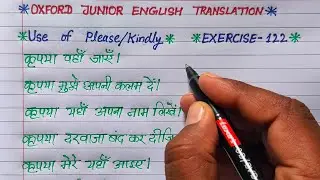 *OXFORD JUNIOR ENGLISH TRANSLATION*
*Use of Please/Kindly* *EXERCISE-122*
कृपया वहाँ जाएँ।
कृपया मुझे अपनी कलम दें।
कृपया यहाँ अपना नाम लिखें।
कृपया दरवाजा बंद कर दीजि
कृपया मेरे यहाँ आइए।